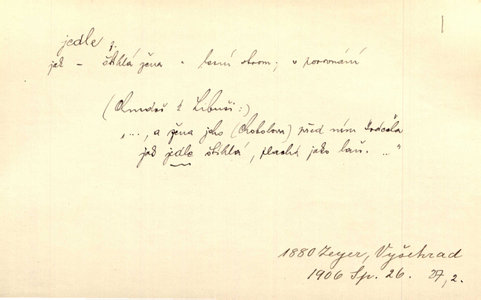 jedle, f.
jak – štíhlá žena – lesní strom; v porovnání
(Lumdoš k Libuši:)
„..., a žena jeho (Rokolova) před ním kráčela
jak jedle štíhlá, plachá jako laň. ..."
1880 Zeyer, Vyšehrad
1906 Sp. 26. 27, 2.